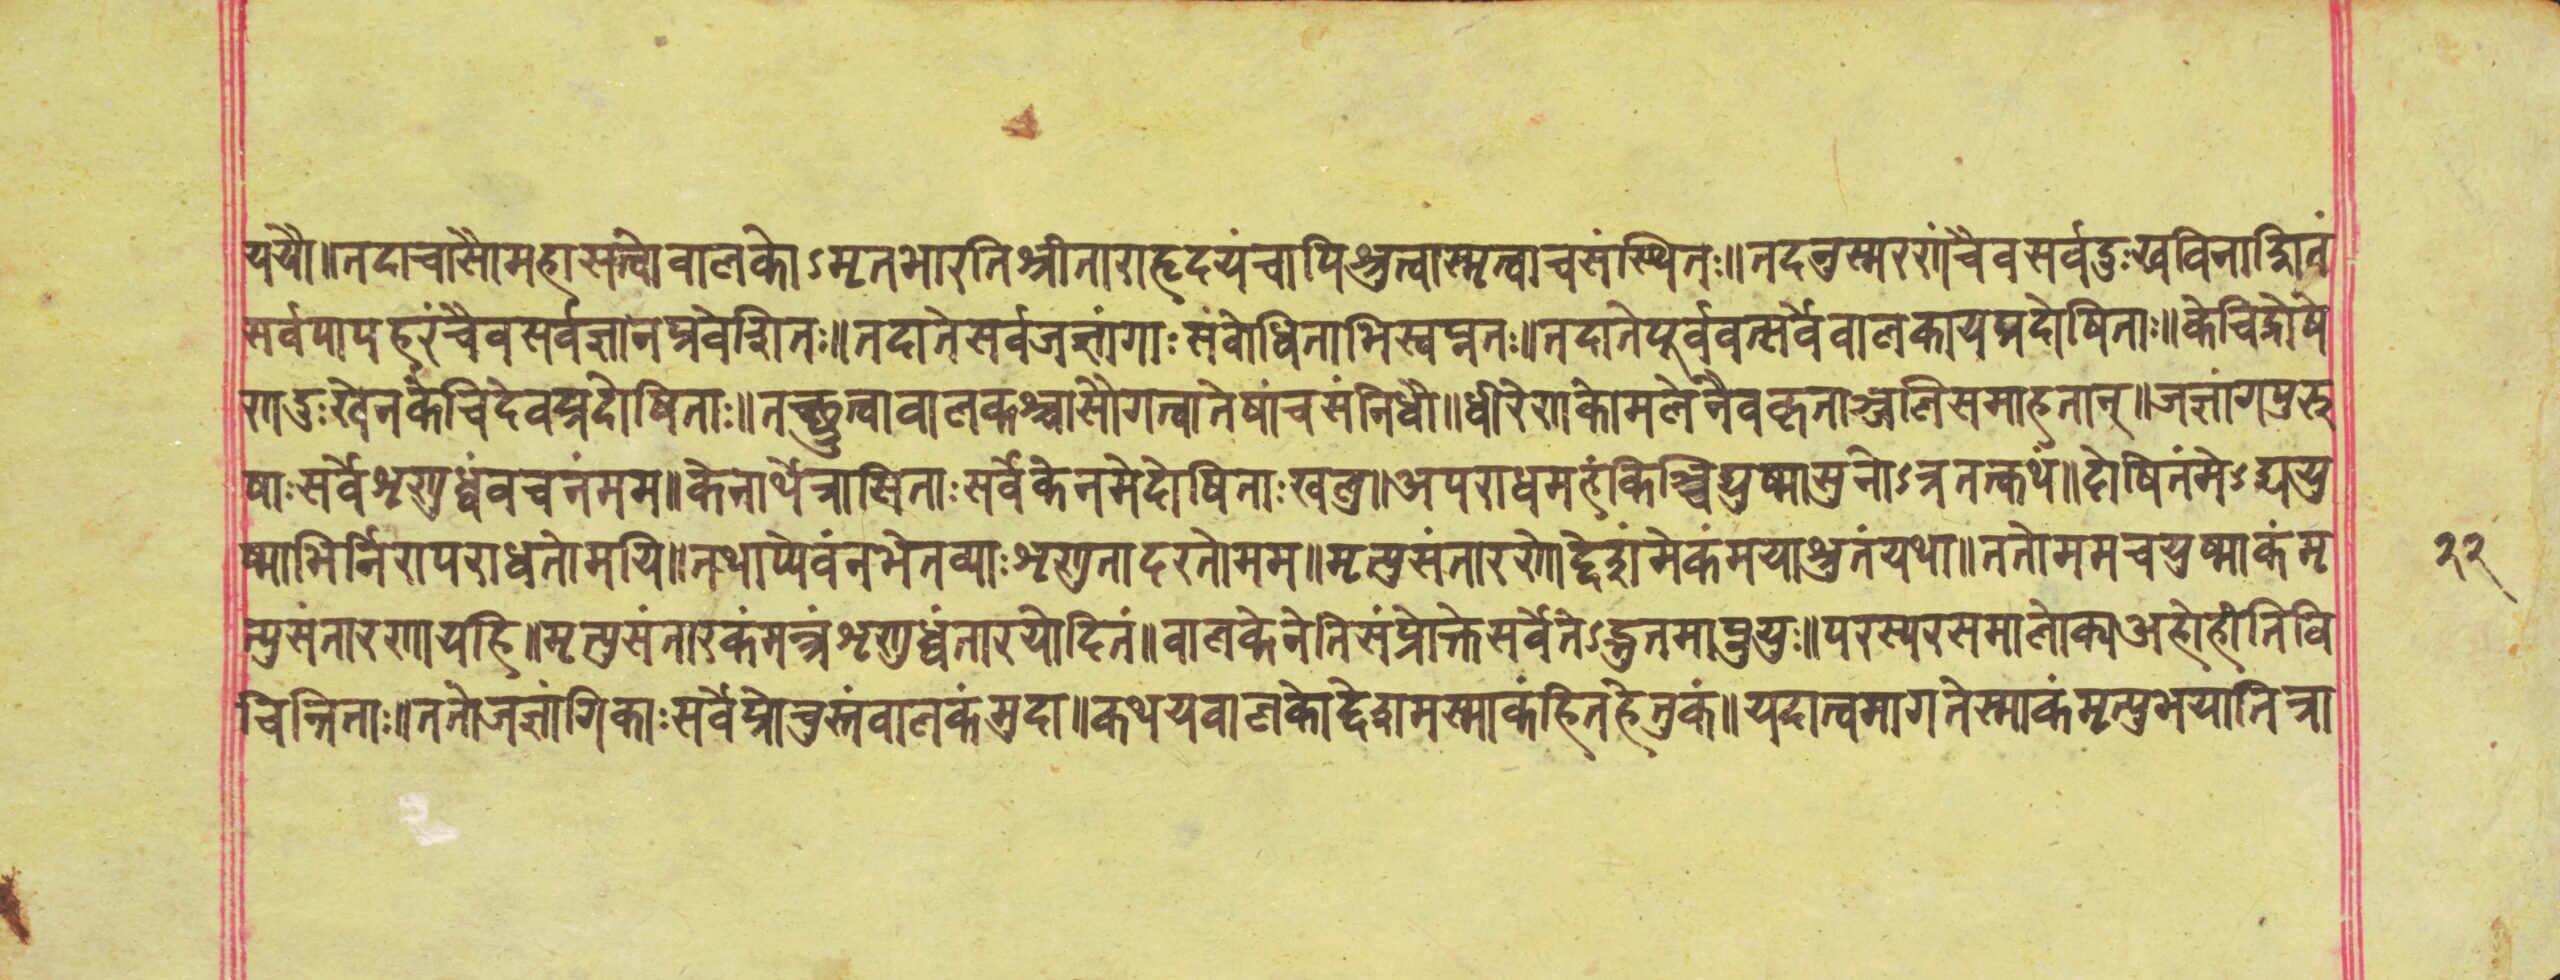 ययौ॥तदाचासौमहासत्वोवालकोऽमृतभारतिश्रीताराहृदयंचापिश्रुत्वास्मृत्वाचसंस्थितः॥तदनुस्मरणंचैवसर्वदुःखविनाशितं
सर्वपापहरंचैवसर्वज्ञानप्रवेशितः॥तदातेसर्वजज्ञांगाःसंवोधिताभिस्वप्नतः॥तदातेपूर्ववत्सर्वेवालकायप्रदोषिताः॥केचिद्रोषे
णदुःखेनकेचिदेवप्रदोषिताः॥तच्छ्रुत्वावालकश्चासौगत्वातेषांचसंनिधौ॥धीरेणकोमलेनैवकृताञ्जलिसमाहतान्॥जज्ञांगपुरु
षाःसर्वेशृणुध्वंवचनंमम॥केनार्थेत्रासिताःसर्वेकेनमेदोषिताःखलु॥अपराधमहंकिञ्चिद्युष्मासुनोऽत्रतत्कथं॥दोषितंमेऽद्ययु
ष्माभिर्निरापराधतोमयि॥तथाप्येवंनभेतव्याःशृणुतादरतोमम॥मृत्युसंतारणोद्देशमेकंमयाश्रुतंयथा॥ततोममचयुष्माकंमृ
त्युसंतारणायहि॥मृत्युसंतारकंमन्त्रंशृणुध्वंतारयोदितं॥वालकेनेतिसंप्रोक्तेसर्वेतेऽद्भुतमाप्नुयुः॥परस्परसमालोक्यअहोहीतिवि
चिन्तिताः॥ततोजज्ञांगिकाःसर्वेप्रोचुस्तंवालकंमुदा॥कथयवालकोद्देशमस्माकंहितहेतुकं॥यदात्वमागतेस्माकंमृत्युभयानित्रा
२२